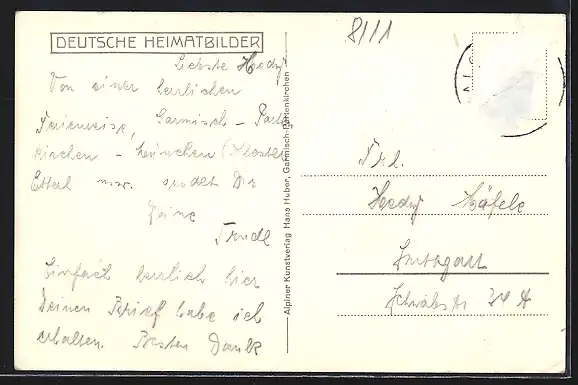 DEUTSCHE HEIMATBILDER
Liebste Hedy!
Von einer herrlichen
Ferienreise, Garmisch - Parten
kirchen - München (Kloster
Ettal usw. sendet Dir
Deine
Trudl
Einfach herrlich hier
Deinen Brief habe ich
erhalten. Besten Dank
Alpiner Kunstverlag Hans Huber, Garmisch-Partenkirchen
8111
Frl.
Hedy Häfele
Stuttgart
Schwabstr.